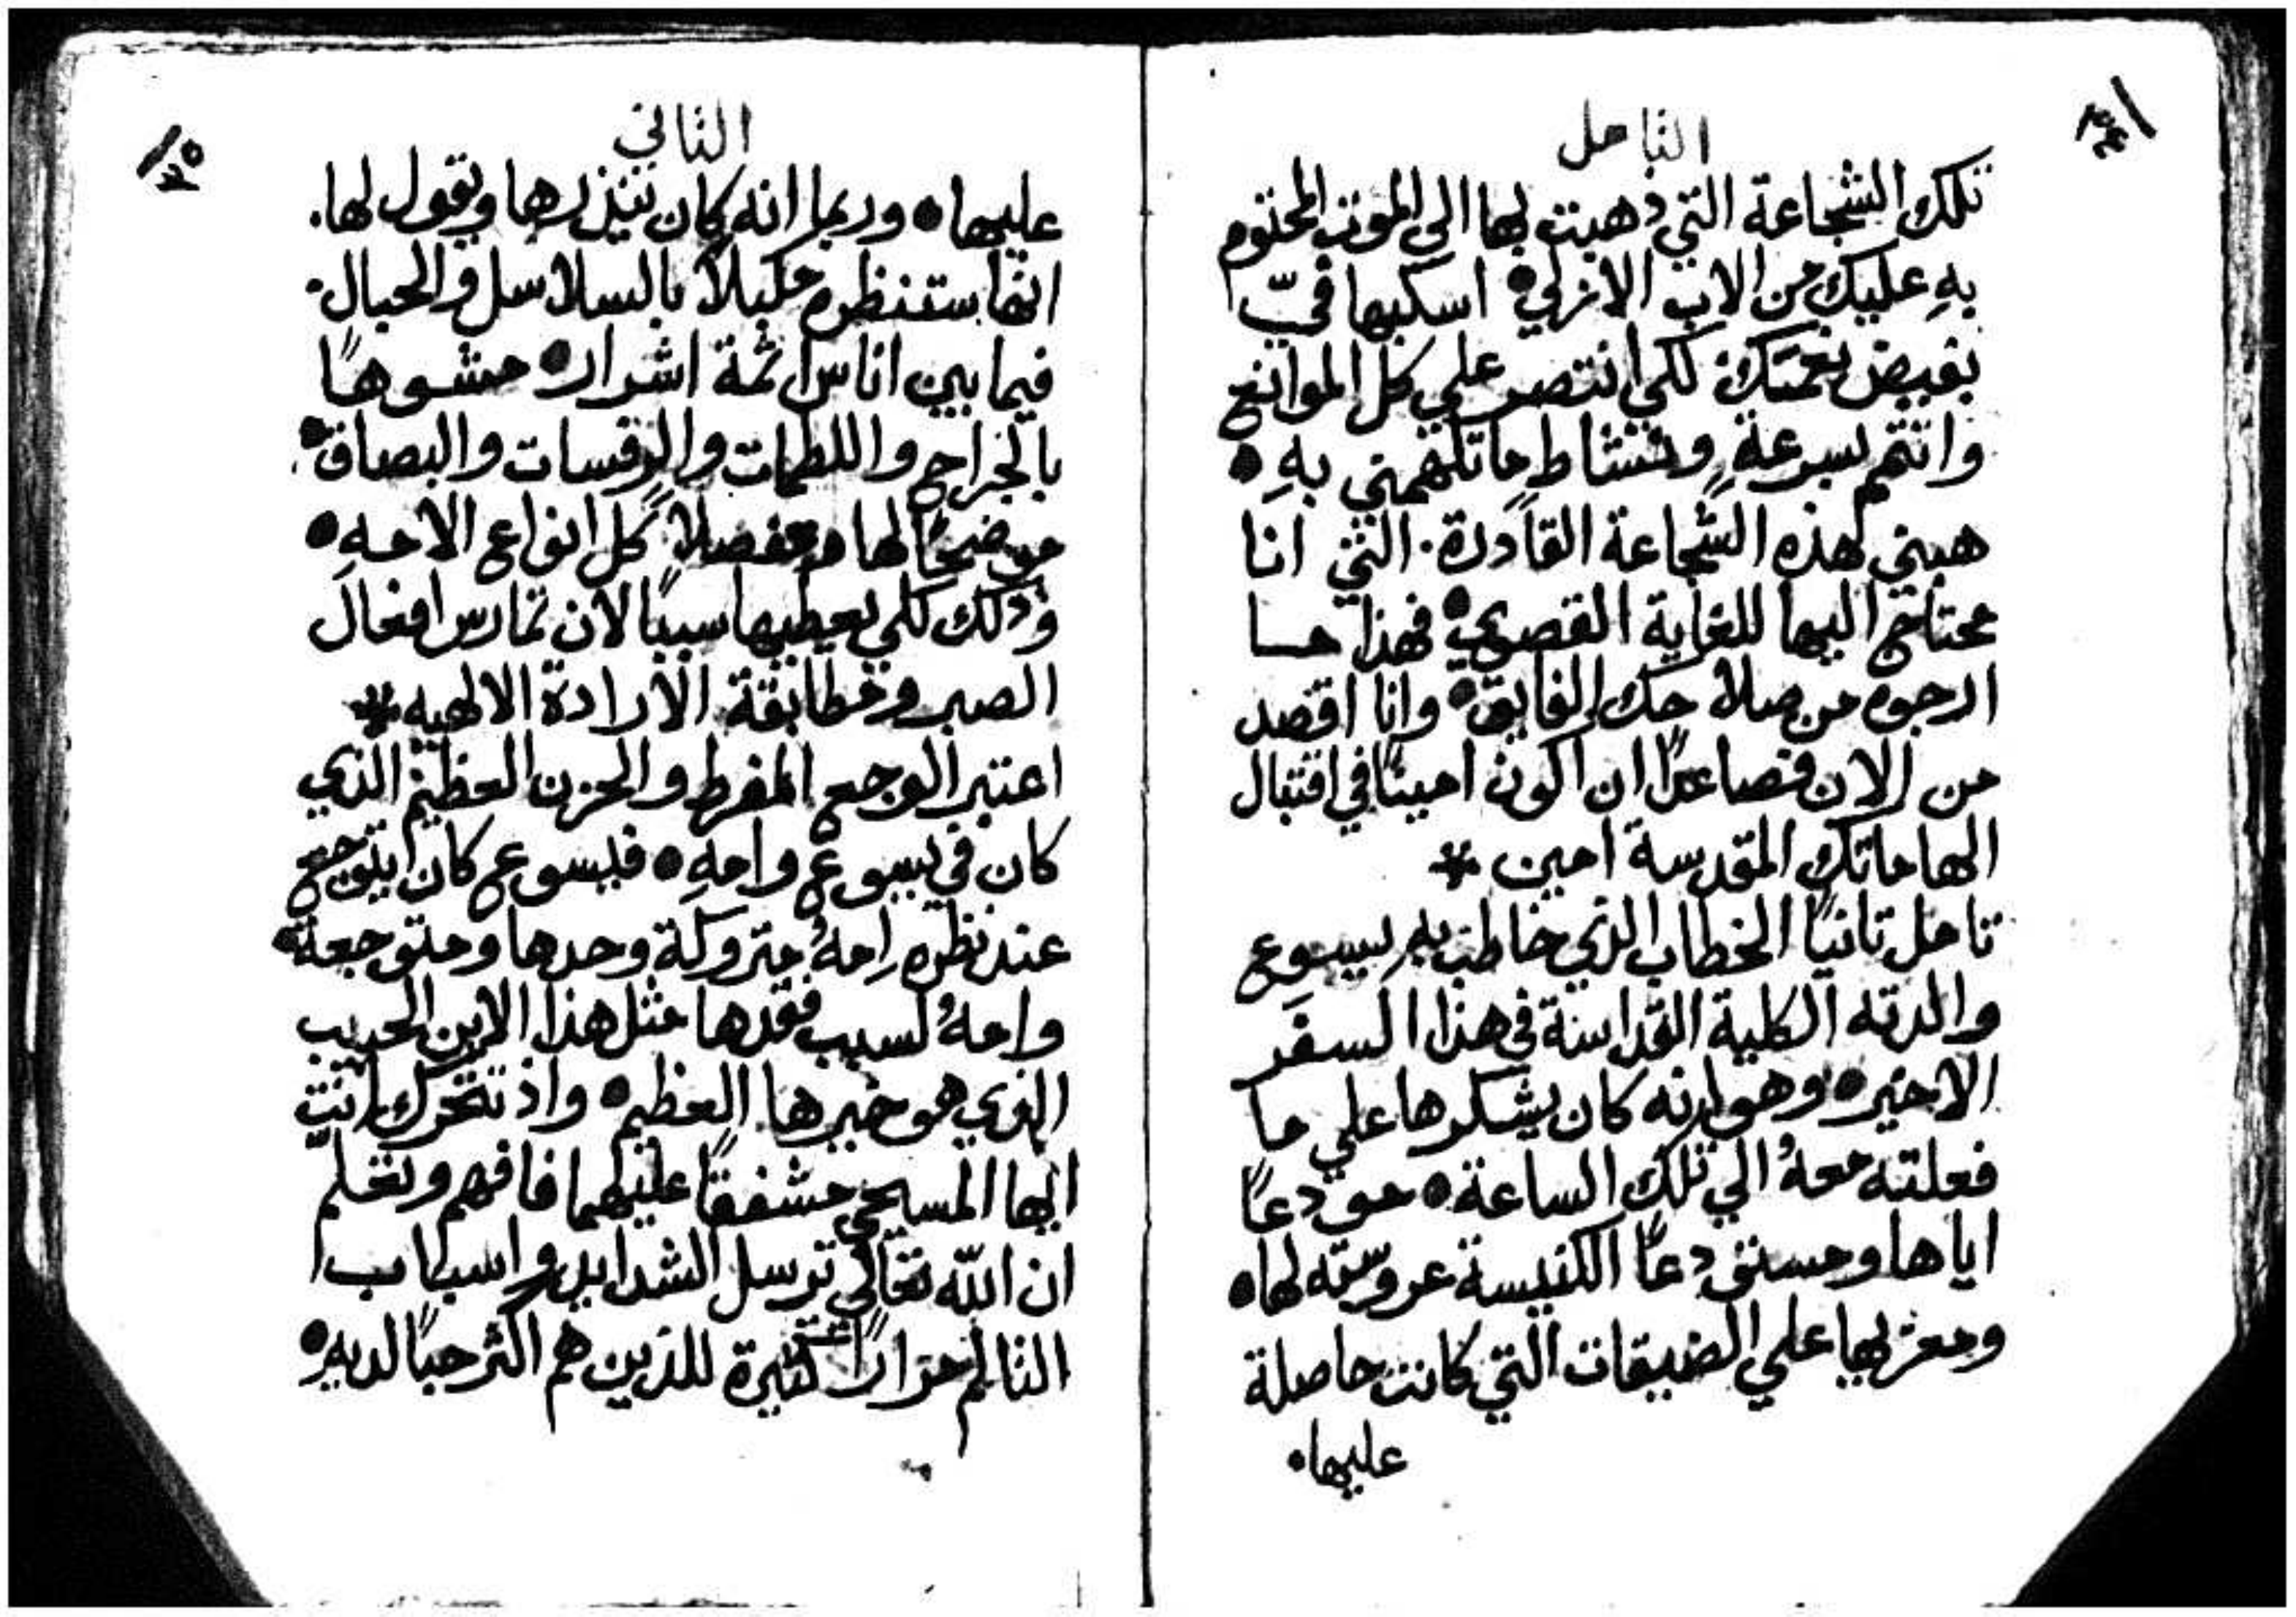 التامل
تلك الشجاعة التي ذهبت بها الى الموت المحتوم
به عليك من الاب الازلي • اسكبها فيّ
بفيض نعمتك لكي انتصر علي كل الموانع
واتمم بسرعةٍ ونشاط ما تلهمني بهِ •
هبني هذه الشجاعة القادرة. التي انا
محتاج اليها للغاية القصوي • فهذا ما
ارجوه من صلاحك الفايق • وانا اقصد
من الان فصاعدًا ان اكون امينًا في اقتبال
الهاماتك المقدسة امين
تامل ثانيًا الخطاب الذي خاطب به يسوع
والدته الكلية القداسة في هذا السفر
الاخير • وهو انه كان يشكرها علي ما
فعلته معهُ الي تلك الساعة • مودعًا
اياها ومستودعًا الكنيسة عروسته لها •
ومعزيها علي الضيقات التي كانت حاصلة
عليها •
الثاني
عليها • وربما انه كان ينذرها ويقول لها.
انها ستنظره مكبلاً بالسلاسل والحبال.
فيما بين اناس اثمة اشرار • مشوهًا
بالجراح واللطمات والرفسات والبصاق •
موضحًا لها ومفصلاً كل انواع الامهِ •
وذلك لكي يعطيها سببًا لان تمارس افعال
الصبر ومطابقة الارادة الالهيه
اعتبر الوجع المفرط والحزن العظيم الذي
كان في يسوع وامهِ • فيسوع كان يتوجع
عند نظره امهُ متروكة وحدها ومتوجعة •
وامهُ لسبب فقدها مثل هذا الابن الحبيب
الذي هو خيرها العظيم • واذ تتحرك انت
ايها المسيحي مشفقًا عليهما فافهم وتعلم
ان الله تعالي يرسل الشدايد واسباب
التالم مرارًا كثيرة للذين هم اكثر حبًا لديه •